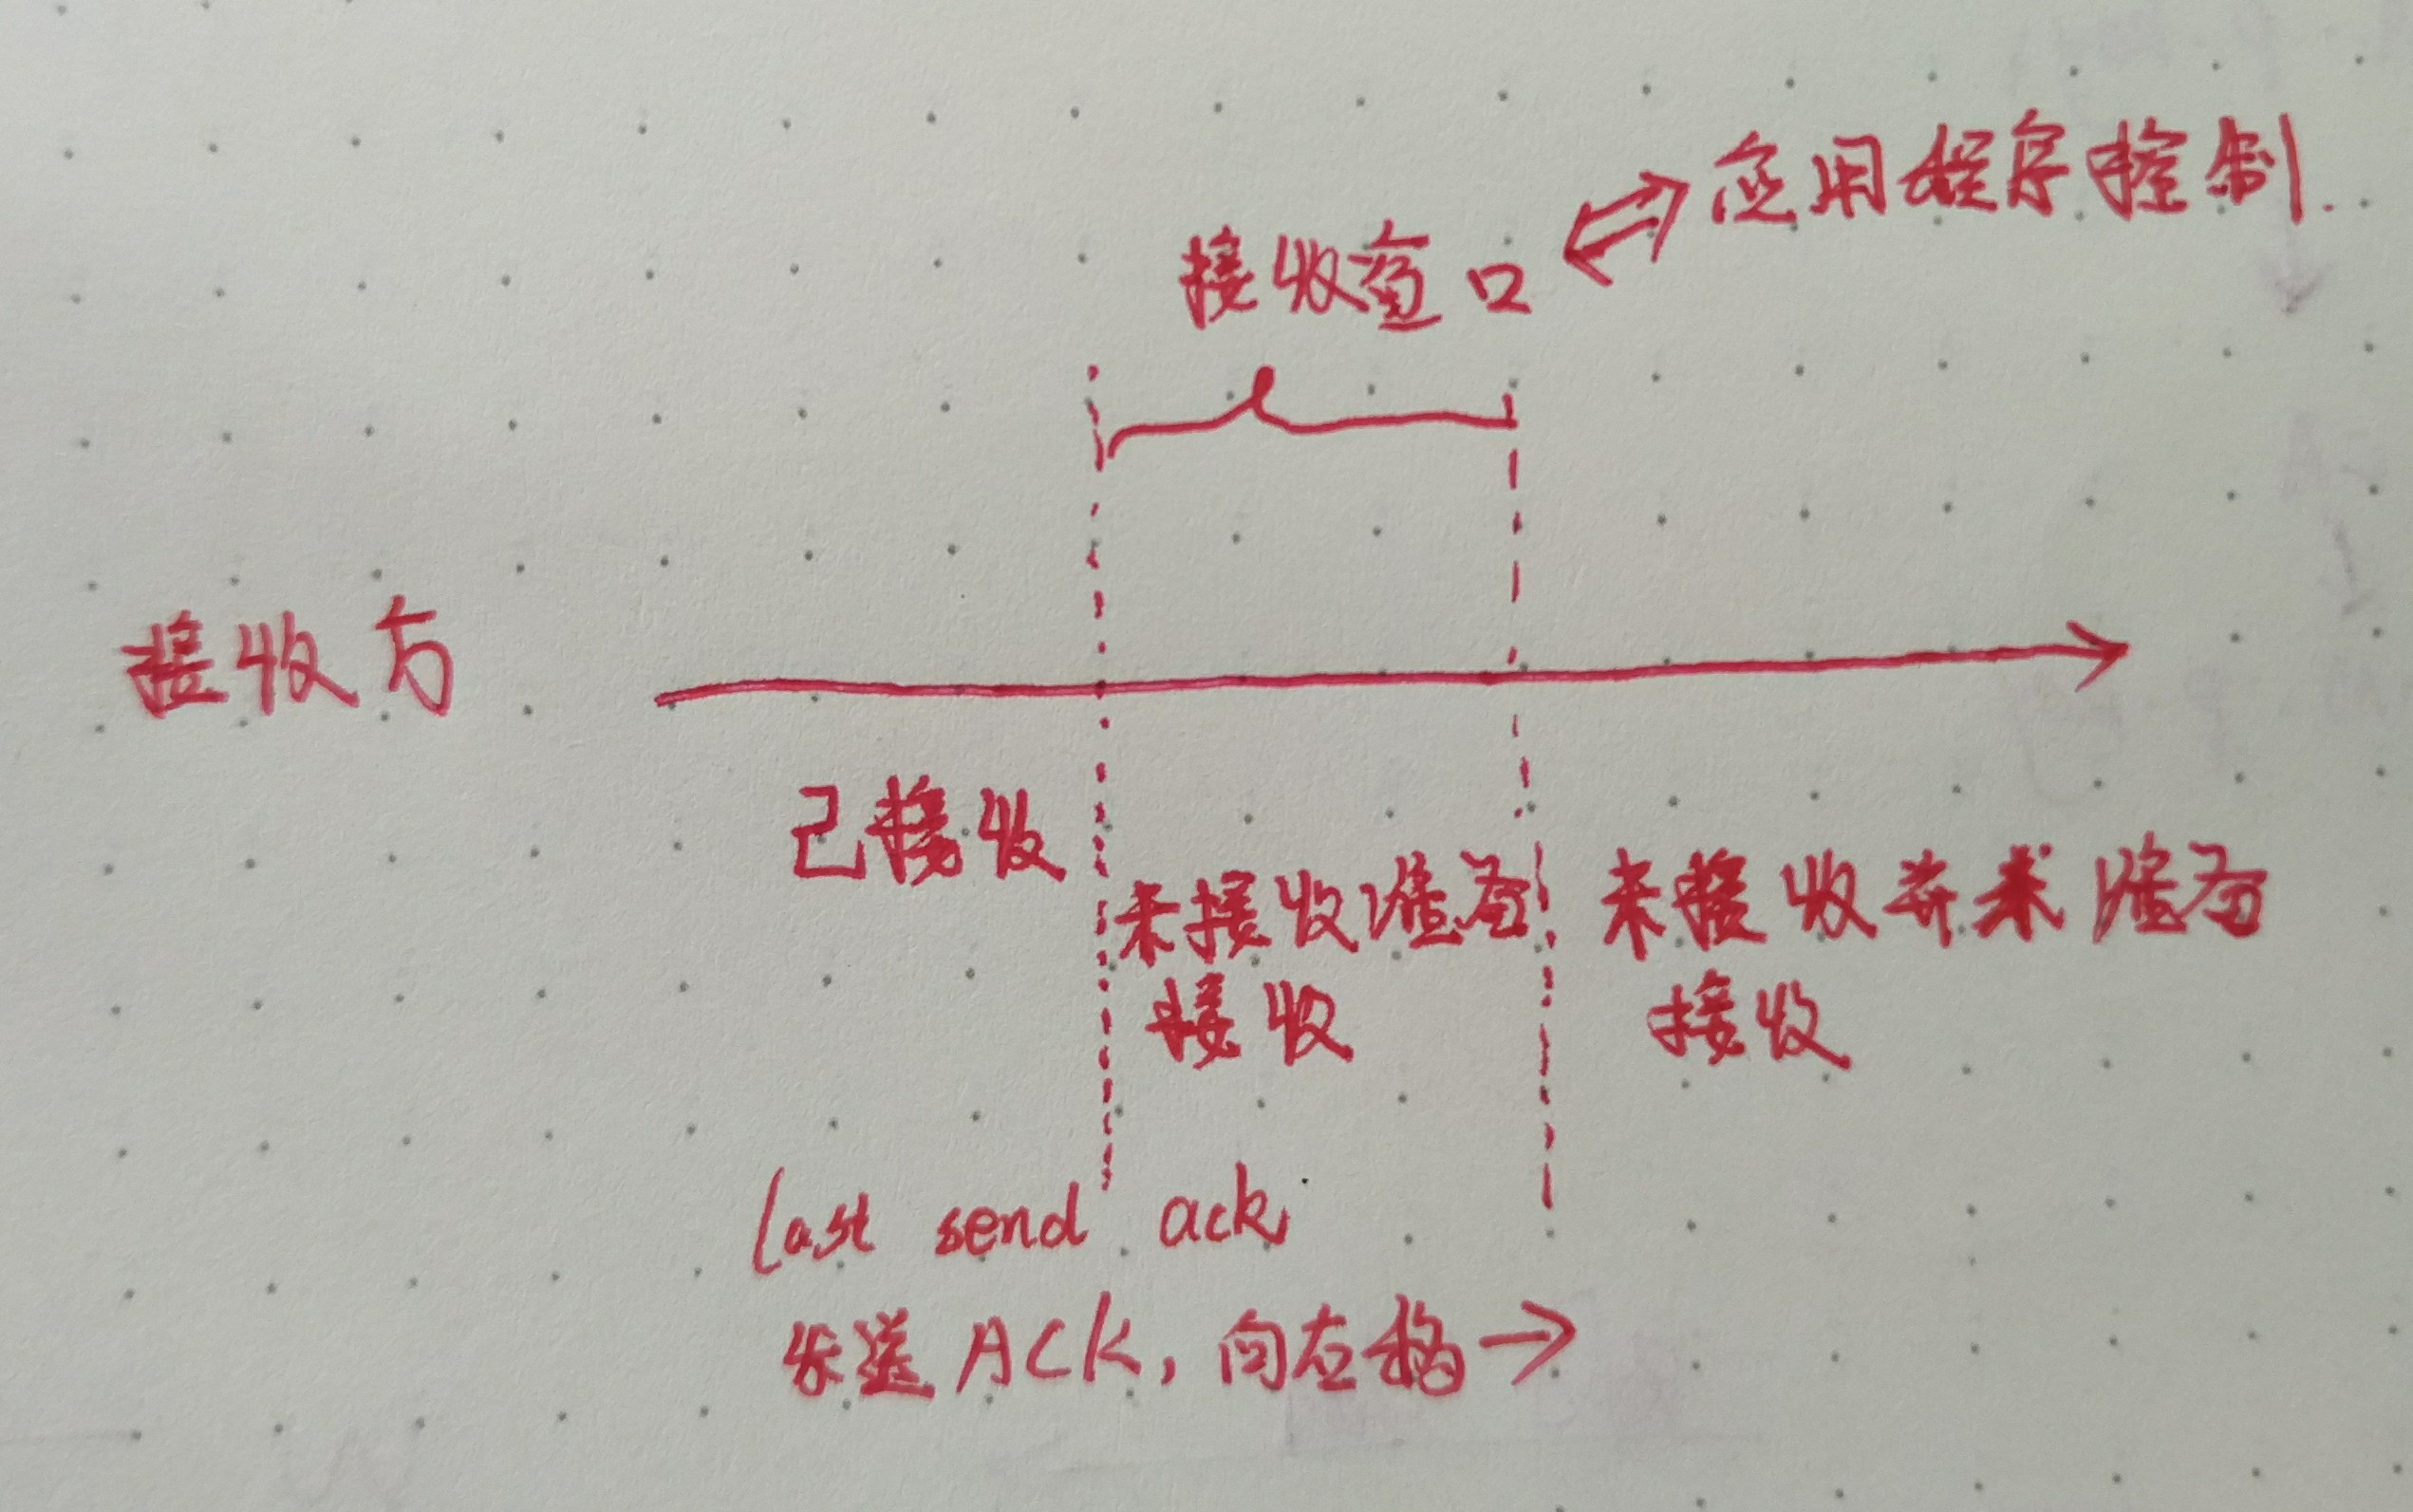 应用程序控制.
接收窗口
接收方
已接收
未接收准备
接收
未接收并未准备
接收
last send ack
发送ACK,向右移→